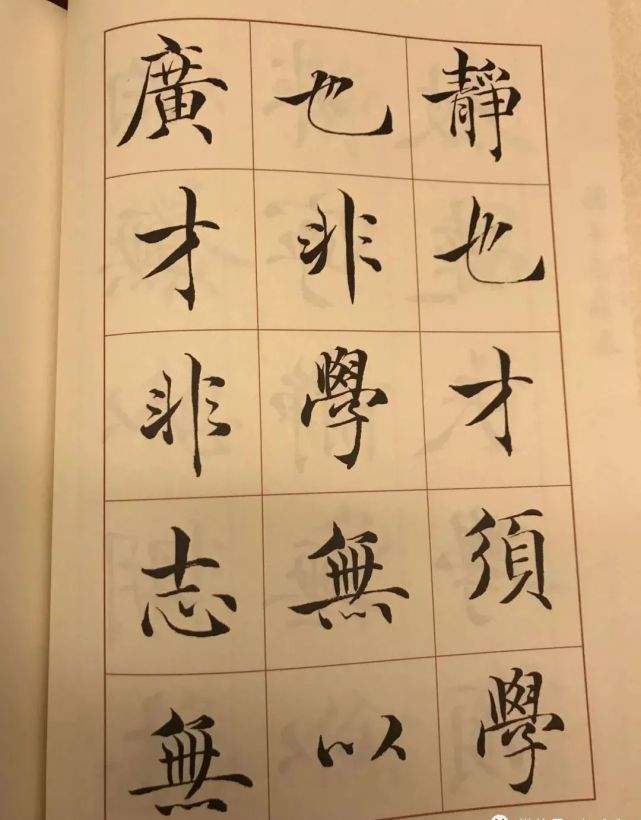 靜也才須學
也非學無以
廣才非志無